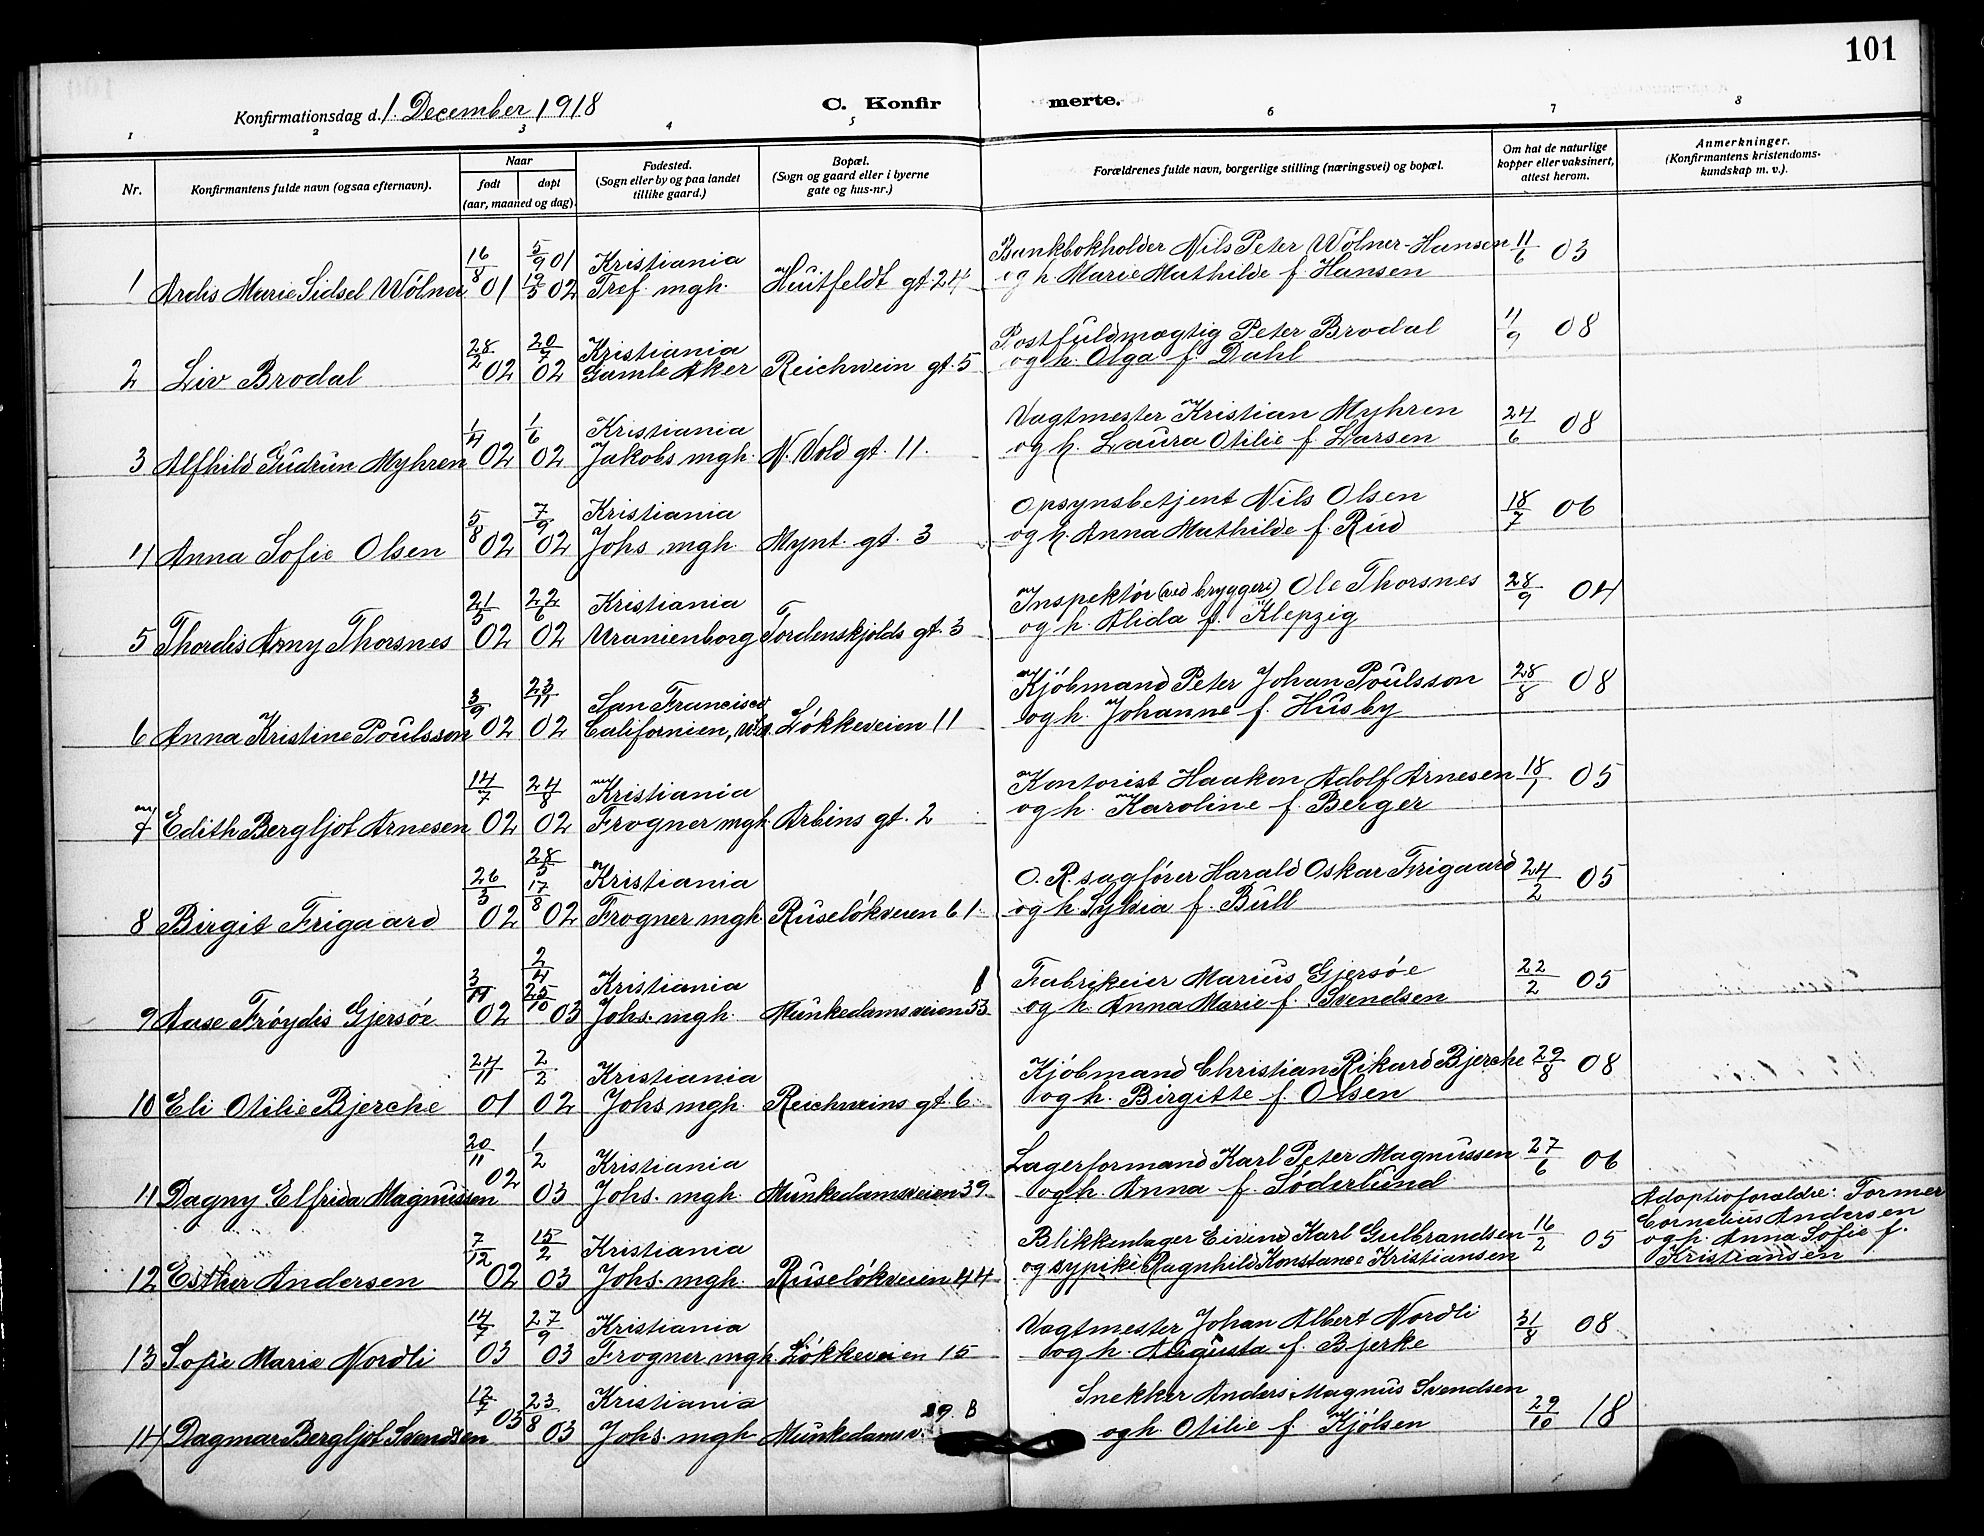 101
Konfirmationsdag d. 1. December 1918
C. Konfirmerte.
1 2 3 4 5 6 7 8
Nr.
Konfirmantens fulde navn (ogsaa efternavn).
Naar
født døpt
(aar, maaned og dag).
Fødested.
(Sogn eller by og paa landet
tillike gaard.)
Bopæl.
(Sogn og gaard eller i byerne
gate og hus-nr.)
Forældrenes fulde navn, borgerlige stilling (næringsvei) og bopæl.
Om hat de naturlige
kopper eller vaksinert,
attest herom.
Anmerkninger.
(Konfirmantens kristendoms-
kundskap m. v.).
16/8 5/9 01 Kristiania Bankbokholder Nils Peter Wölner-Hansen 11/6 03
1 Ardis Marie Sidsel Wölner 01 19/5 02 Tref. mgh. Huitfeldt gt. 24 og h. Marie Mathilde f. Hansen
28/2 20/7 Kristiania Postfuldmægtig Peter Brodal 11/9 08
2 Liv Brodal 02 02 Gamle Aker Reichwein gt. 5 og h. Olga f. Dahl
1/4 1/6 Kristiania Vagtmester Kristian Myhren 24/6 08
3 Alfhild Gudrun Myhren 02 02 Jakobs mgh. N. Vold gt. 11. og h. Laura Otilie f. Larsen
5/8 7/9 Kristiania Opsynsbetjent Nils Olsen 18/7 06
4 Anna Sofie Olsen 02 02 Johs mgh. Mynt. gt. 3 og h. Anna Mathilde f. Rud
21/5 22/6 Kristiania Inspektör (ved bryggeri) Ole Thorsnes 28/9 04
5 Thordis Amy Thorsnes 02 02 Uranienborg Tordenskjolds gt. 3 og h. Alida f. Klepzig
3/9 23/11 San Francisco Kjöbmand Peter Johan Poulsson 28/8 08
6 Anna Kristine Poulsson 02 02 Californien, Lökkeveien 11 og h. Johanne f. Husby
14/7 24/8 Kristiania Kontorist Haakon Adolf Arnesen 18/1 05
7 Edith Bergljot Arnesen 02 02 Frogner mgh. Arbins gt. 2 og h. Karoline f. Berger
26/3 28/5 17/8 Kristiania O. R. sagförer Harald Oskar Frigaard 24/2 05
8 Birgit Frigaard 02 02 Frogner mgh. Ruselökveien 61. og h. Sylvia f. Bull
3/11 2/4 25/10 Kristiania B Fabrikeier Marius Gjersöe 22/2 05
9 Aase Fröydis Gjersöe 02 03 Johs. mgh. Munkedamsveien 53 og h. Anna Marie f. Svendsen
24/11 2/2 Kristiania Kjöbmand Christian Rikard Bjerche 29/8 08
10 Eli Otilie Bjerche 01 02 Johs mgh. Reichweins gt. 6. og h. Birgitte f. Olsen
20/11 1/2 Kristiania Lagerformand Karl Peter Magnussen 27/6 06
11 Dagny Elfrida Magnussen 02 03 Johs. mgh. Munkedamsveien 39. og h. Anna f. Söderlund
7/12 15/2 Kristiania Blikkenlager Eivind Karl Gulbrandsen 16/2 05
12 Esther Andersen 02 03 Johs. mgh. Ruselökveien 44 og sypike Ragnhild Konstance Kristiansen
Adoptivforældre: Former
Cornelius Andersen
og h. Anna Sofie f.
Kristiansen
14/7 27/9 Kristiania Vagtmester Johan Albert Nordli 31/8 08
13 Sofie Marie Nordli 03 03 Frogner mgh. Lökkeveien 15 og h. Augusta f. Bjerke
12/7 23/8 Kristiania 29. B Snekker Anders Magnus Svendsen 29/10 18
14 Dagmar Bergljot Svendsen 03 03 Johs. mgh. Munkedamsv. og h. Otilie f. Kjölsen